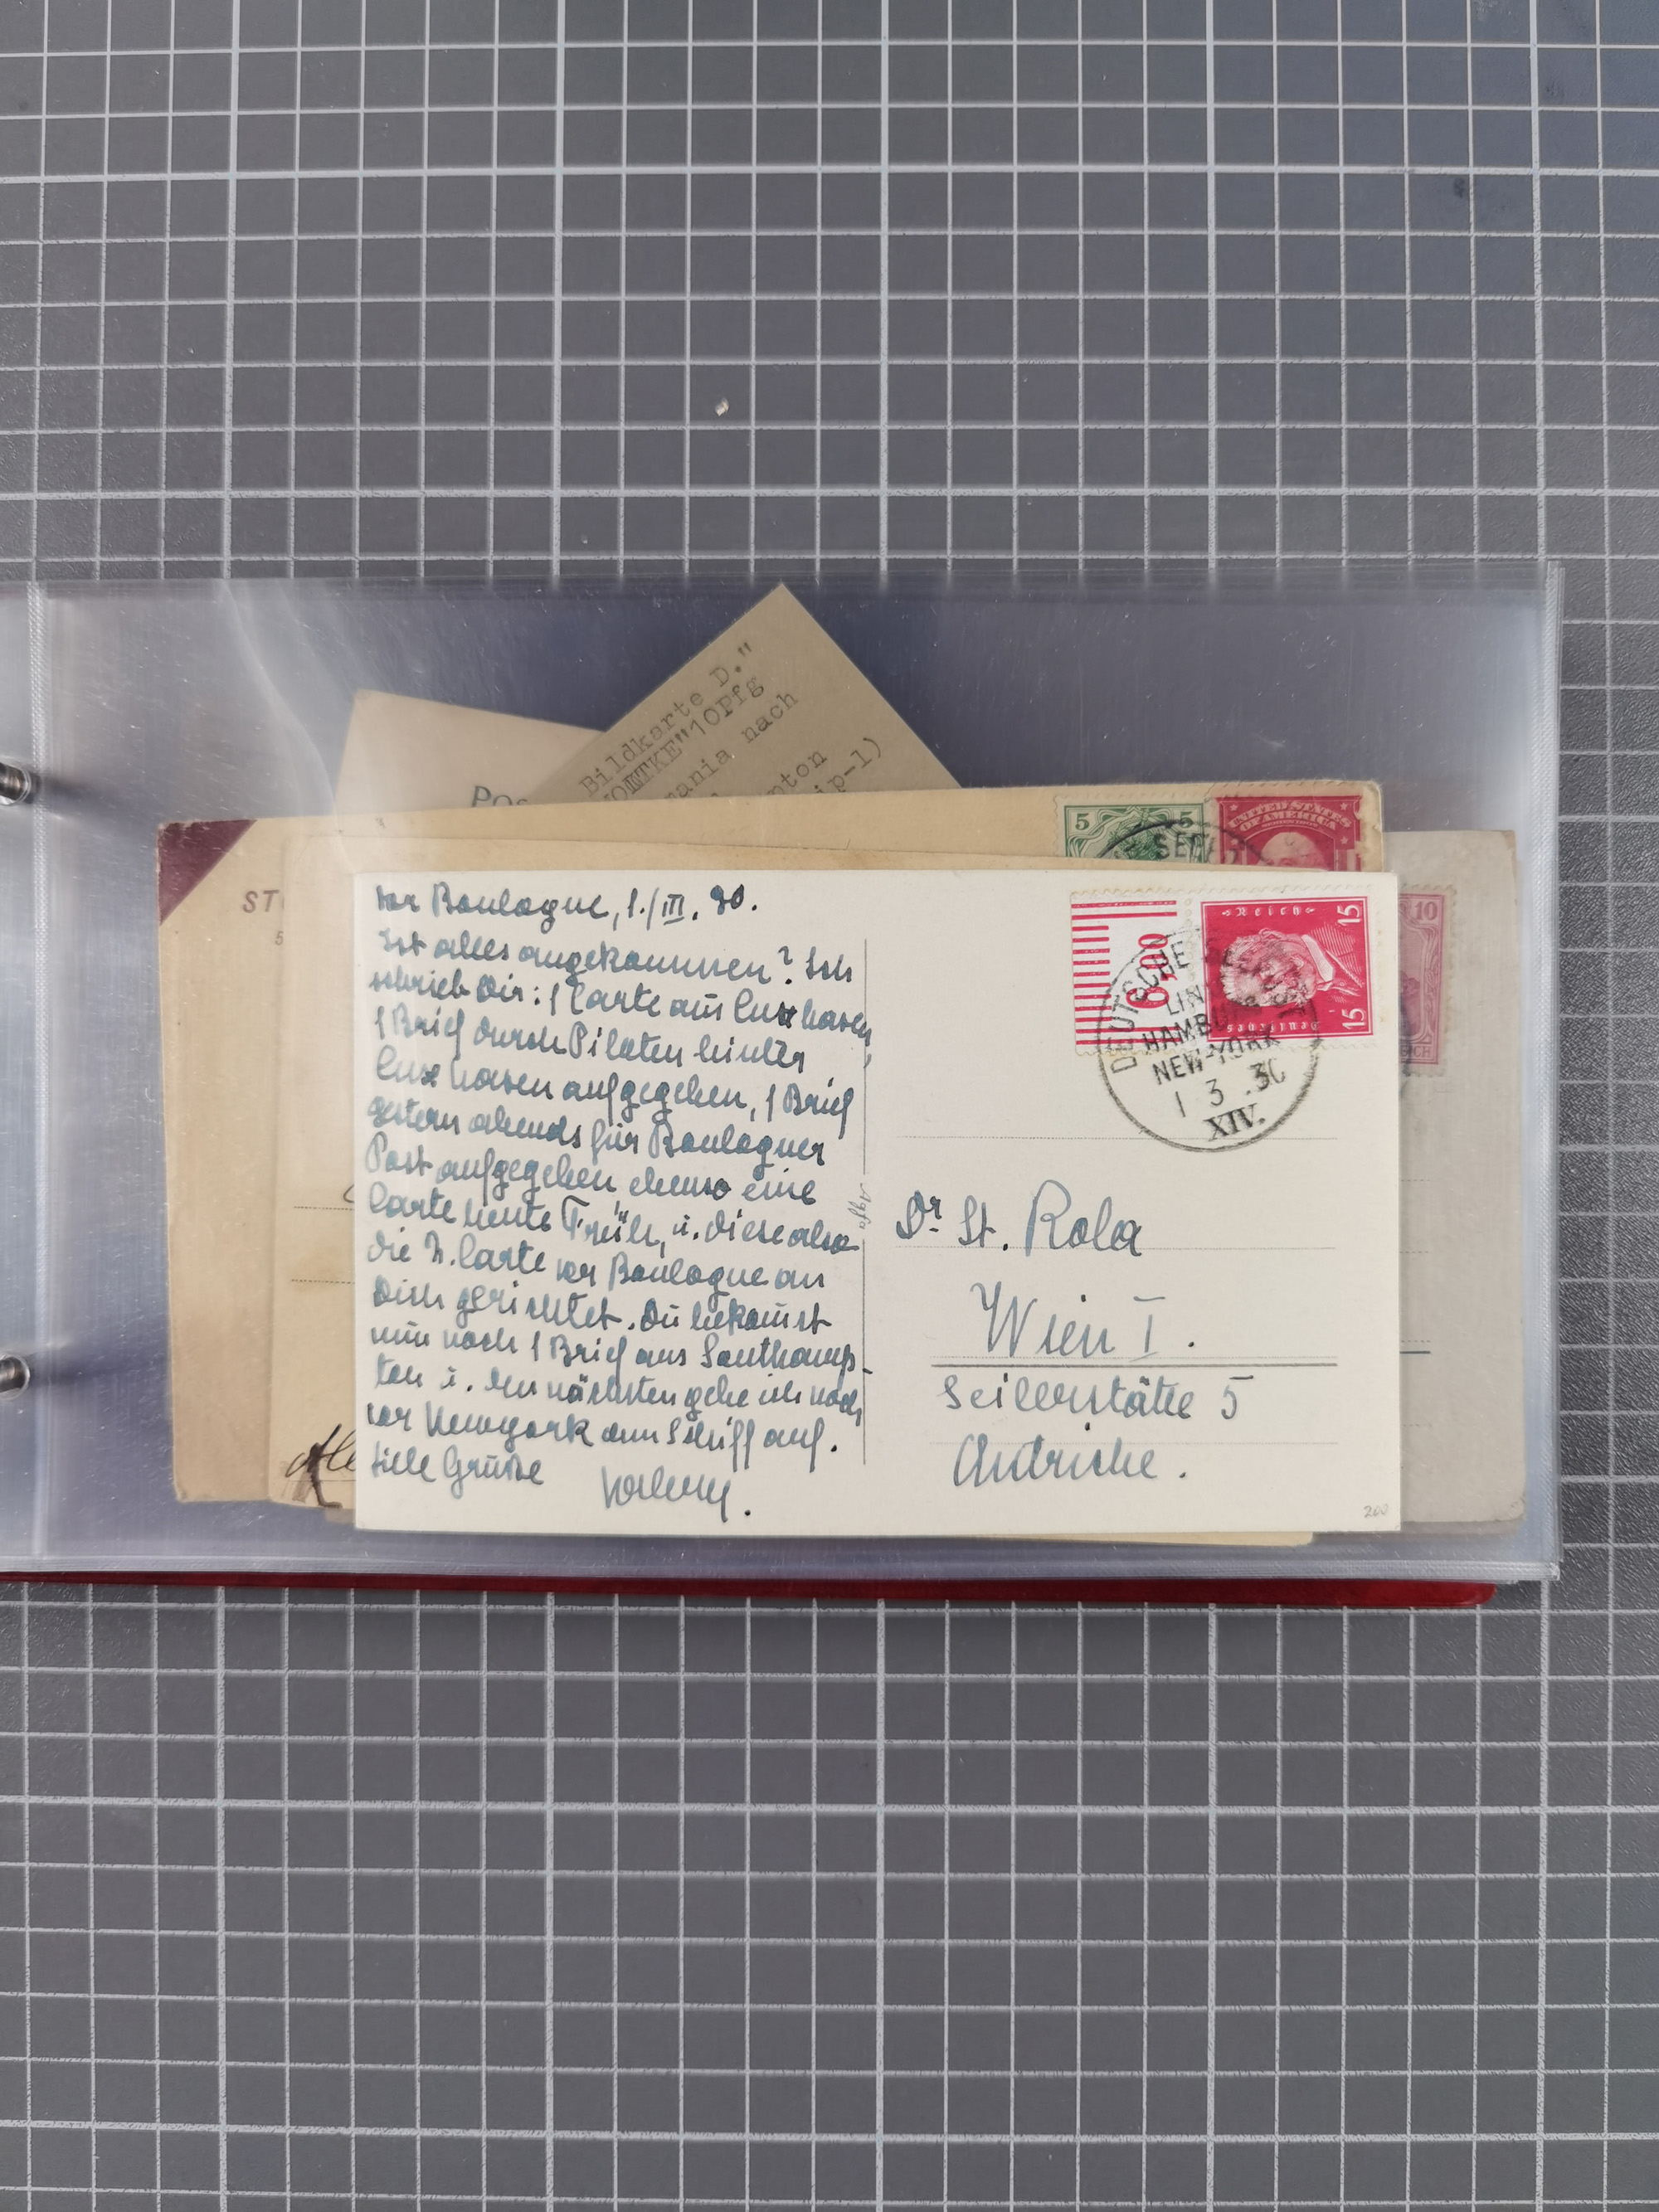 Bildkarte D."
"10Pfg
nach
ip-1)
5
5
UNITED STATES
OF AMERICA
10
ST
5
vor Boulogne, 1./III. 30.
Ist alles angekommen? Ich
schrieb Dir: 1 Carte aus Cuxhaven,
1 Brief durch Piloten hinter
Cuxhaven aufgegeben, 1 Brief
gestern abends für Boulogner
Post aufgegeben ebenso eine
Carte heute Früh, u. diese also
die 2. Carte vor Boulogne an
Dich gerichtet. Du bekommst
nun noch 1 Brief aus Southamp-
ton u. den nächsten gebe ich noch
vor Newyork am Schiff auf.
Viele Grüße
Deutsches
Reich
15
15
6,00
DEUTSCHE SEEPOST
LINIE
HAMBURG
NEW-YORK
1 3 .30
XIV.
Agfa
Dr. St. Rola
Wien I.
Seilerstätte 5
200